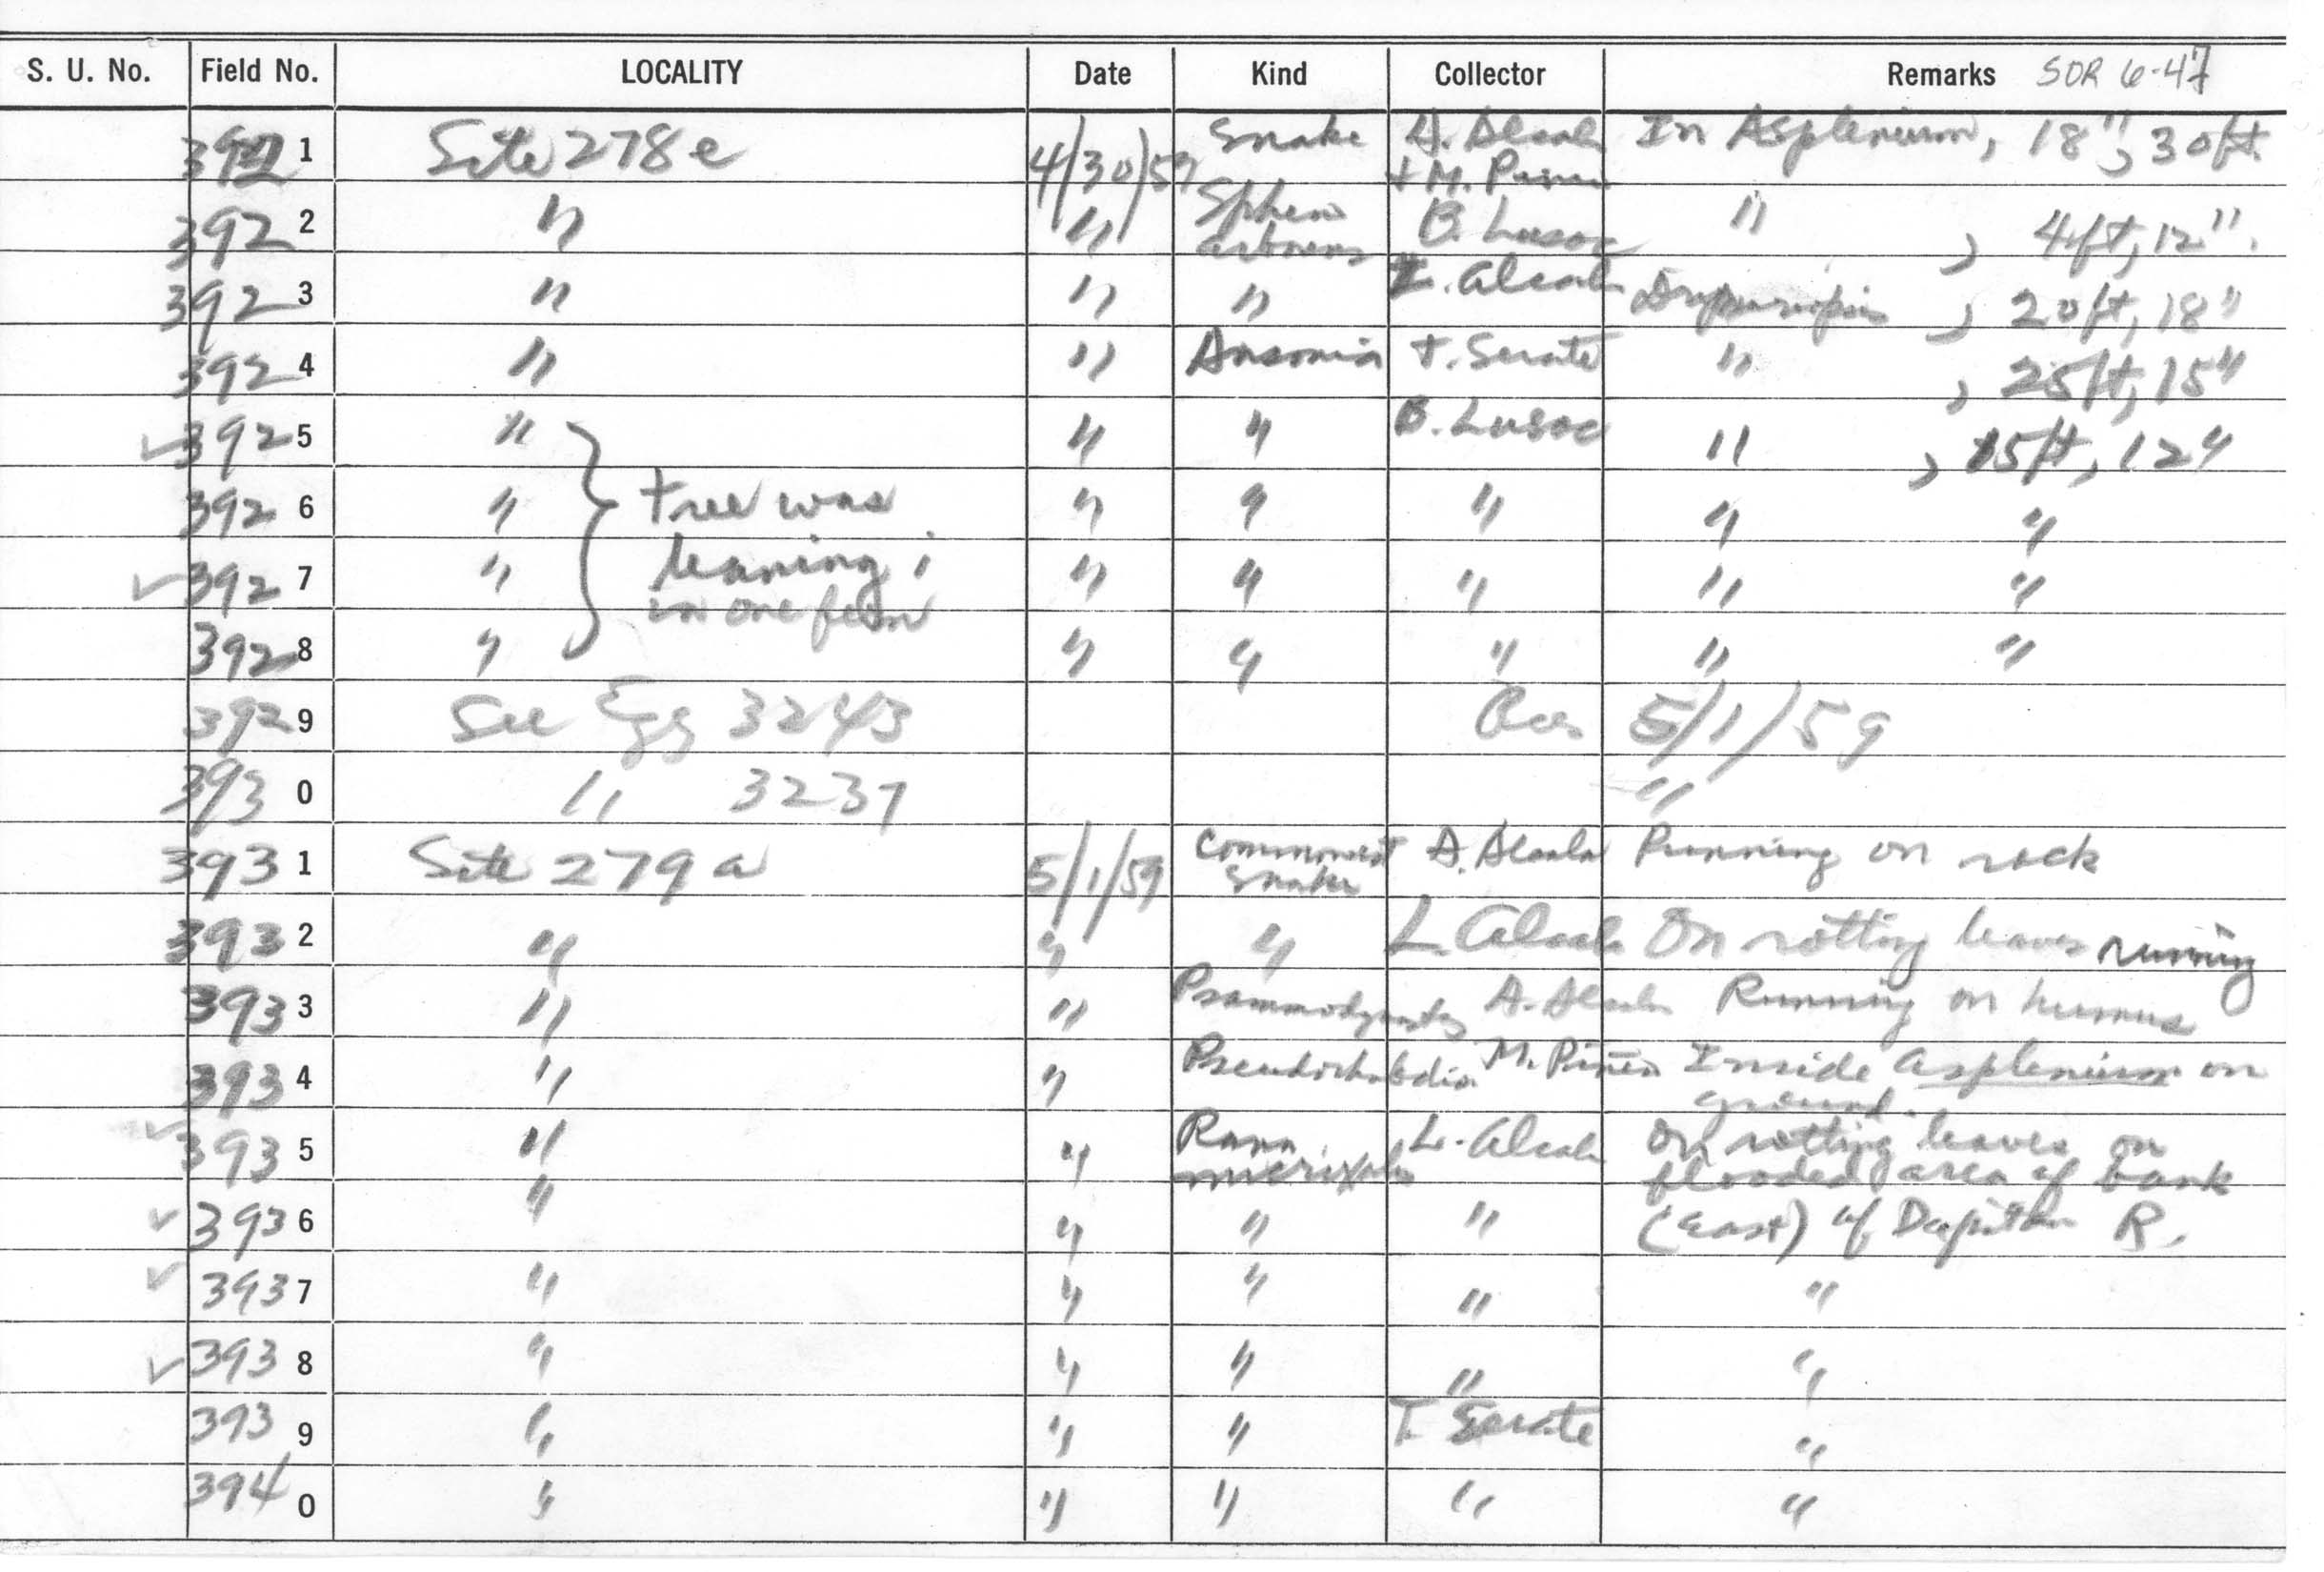 S. U. No. Field No. LOCALITY Date Kind Collector Remarks SOR 6-47
3921 Site 278e 4/30/59 Snake A. Alcala + M. In Asplenium, 18", 30ft.
3922 " " Spheno B. Lusoc " , 4ft, 12".
3923 " " " L. Alcala , 20ft, 18"
3924 " " Ansonia T. Serate " , 25ft, 15"
3925 " " " B. Lusoc " , 15ft, 12"
3926 " tree was " " " " "
3927 " leaning ; " " " " "
in one fern
3928 " " " " " "
3929 See Egg 3243 5/1/59
3930 " 3237 "
3931 Site 279a 5/1/59 Commonest snake A. Alcala Running on rock
3932 " " " L. Alcala On rotting leaves running
3933 " " Psammodynastes A. Alcala Running on humus
3934 " " M. Inside Asplenium on ground.
3935 " " Rana L. Alcala On rotting leaves on flooded area of bank
3936 " " " " (East) of Dapitan R.
3937 " " " " "
3938 " " " " "
3939 " " " T. Serate "
3940 " " " " "